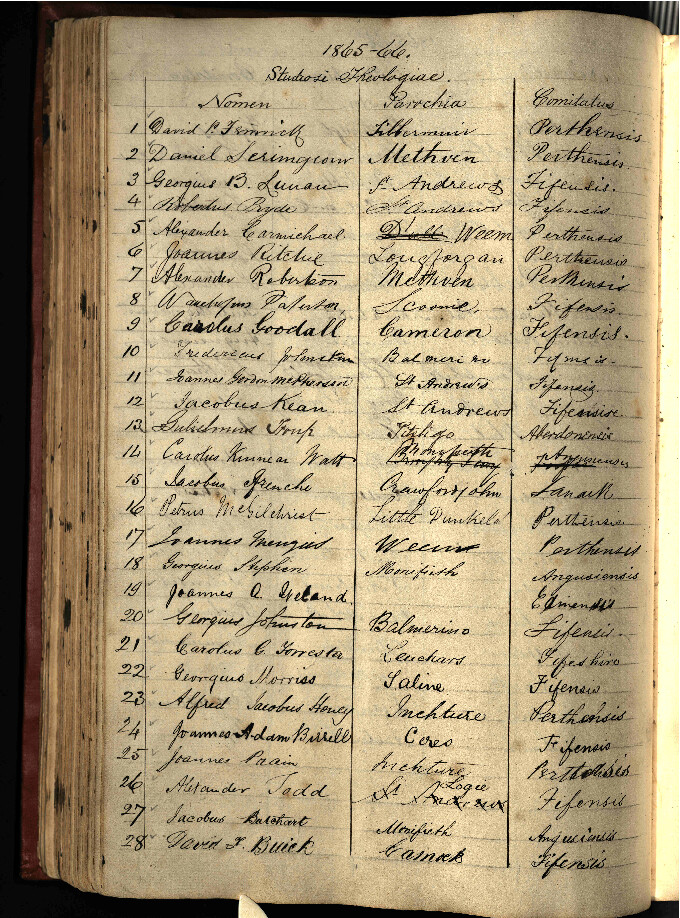 1865-66.
Studiosi Theologiae.
Nomen Parochia Comitatus
1 David P. Fenwick Tibbermuir Perthensis
2 Daniel Scrimgeour Methven Perthensis
3 Georgius B. Lunan St Andrews Fifensis.
4 Robertus Pryde St Andrews Fifensis
5 Alexander Carmichael Dull Weem Perthensis
6 Joannes Ritchie Longforgan Perthensis
7 Alexander Robertson Methven Perthensis
8 Wauchopius Paterson, Scoonie, Fifensis.
9 Carolus Goodall Cameron Fifensis.
10 Fredericus Johnston Balmerino Fifensis
11 Joannes Gordon McPherson St Andrews Fifensis.
12 Jacobus Kean St Andrews Fifensise
13 Gulielmus Troup Pitsligo Aberdonensis
14 Carolus Kinnear Watt Monifieth Angusiensis
15 Jacobus Ffrenche Crawfordjohn Lanark
16 Petrus McGilchrist Little Dunkeld Perthensis
17 Joannes Menzies Weem Perthensis
18 Georgius Stephen Monifieth Angusiensis
19 Joannes A. Ireland. Edinensis
20 Georgius Johnston Balmerino Fifensis
21 Carolus C. Forrester Leuchars Fifeshire
22 Georgius Morriss Saline Fifensis
23 Alfred Jacobus Henry Inchture Perthensis
24 Joannes Adam Birrell Ceres Fifensis
25 Joannes Paain Inchture Perthensis
26 Alexander Todd St Andrews Logie Fifensis
27 Jacobus Barchart Monifieth Angusiensis
28 David F. Buick Carnock Fifensis